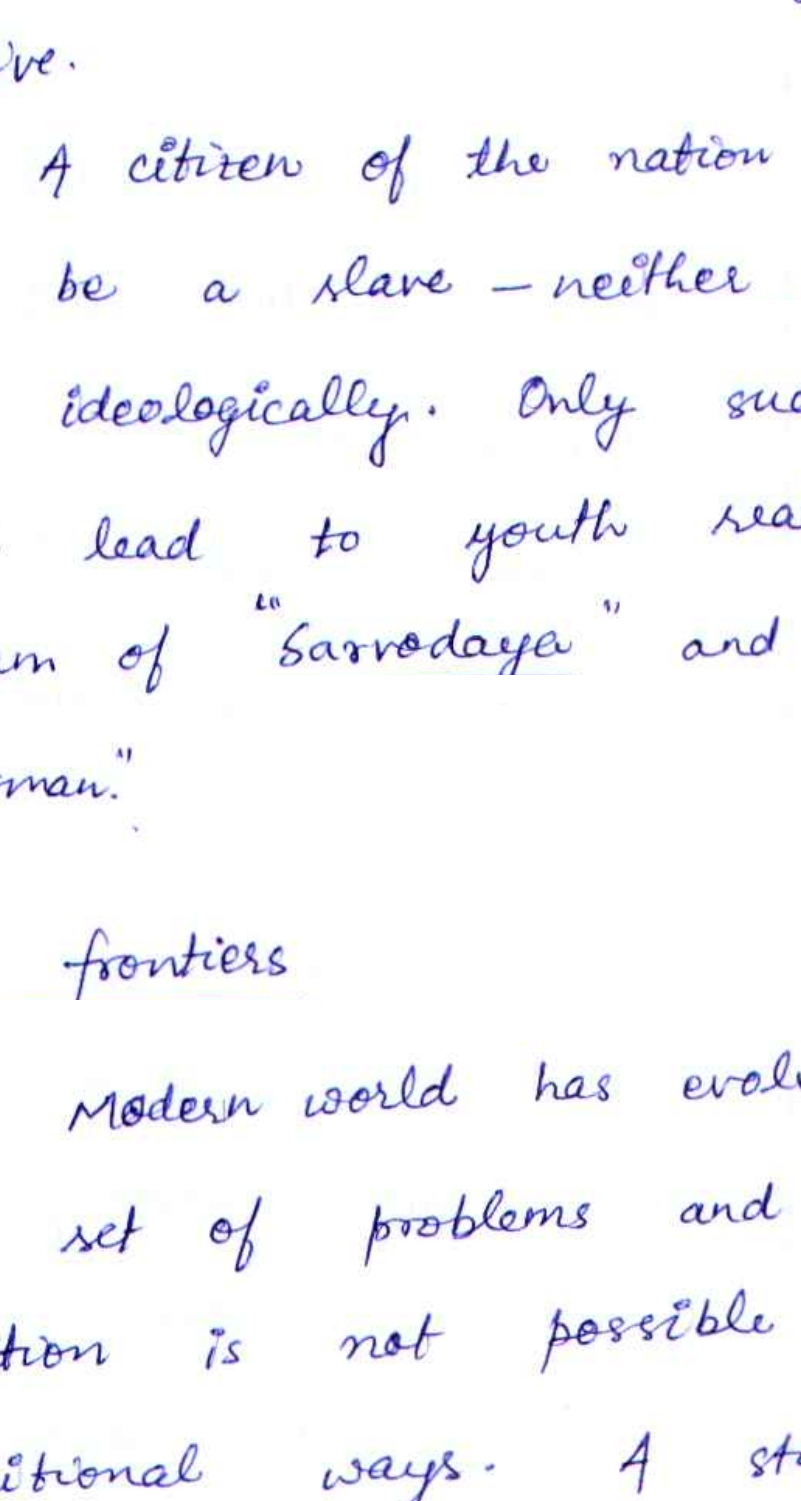 ve.
A citizen of the nation
be a slave – neither
ideologically. Only suc
lead to youth rea
m of "Sarvodaya" and
man."
frontiers
Modern world has evol
set of problems and
tion is not possible
itional ways. A st